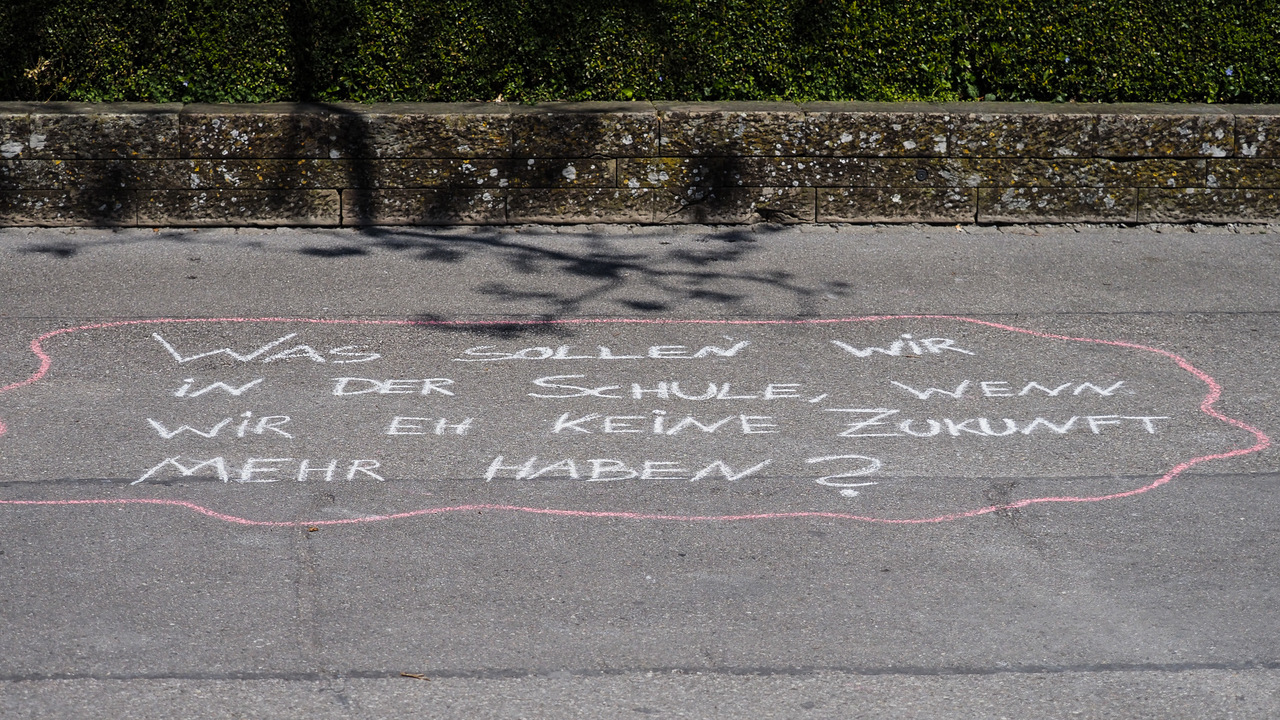 WAS SOLLEN WiR
iN DER SCHULE, WENN
WiR EH KEiNE ZUKUNFT
MEHR HABEN?